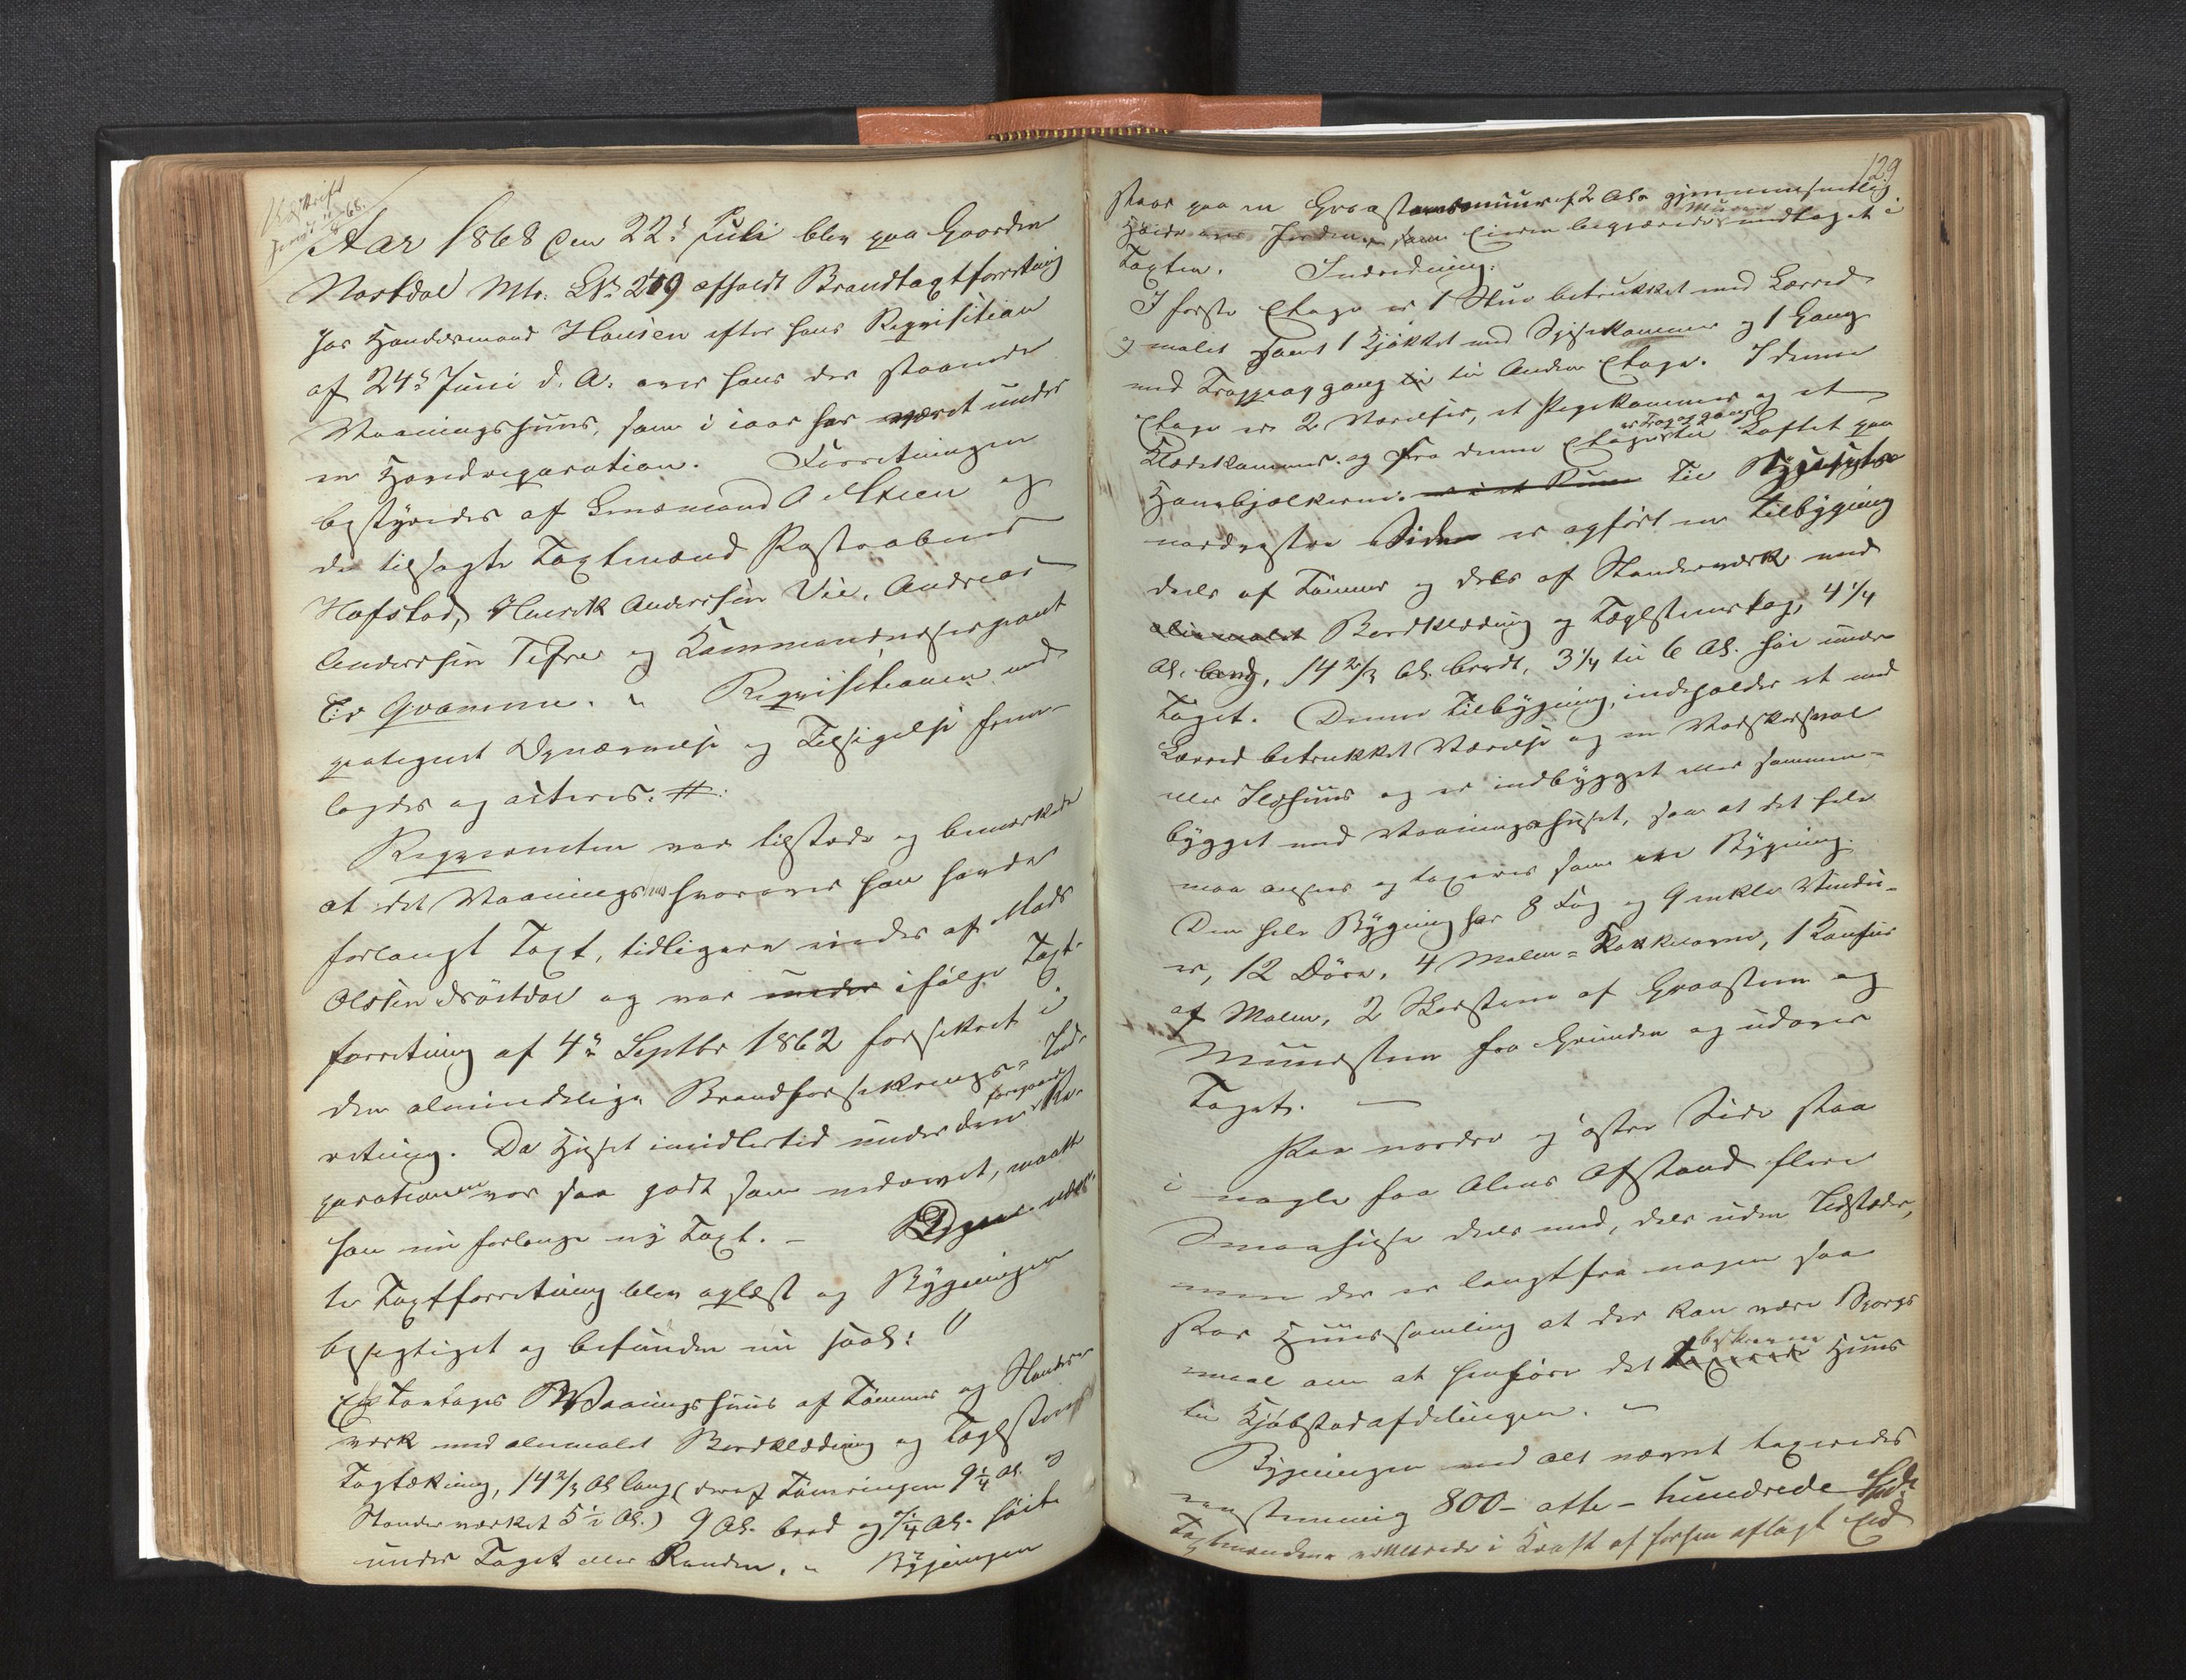 Udskrift
68.
Aar 1868 den 22de Juli blev paa Gaarden
Nastdal Mtr. LNo 219 afholdt Brandtaxtforretning
hos Handelsmand Hansen efter hans Reqvisition
af 24de Juni d. A. over hans der staaende
Vaaningshuus, som i iaar har været under
en Hovedreparation. Forretningen
bestyredes af Lensmand A Steen og
de tilsagte Taxtmænd Postaabner
Hafstad, Henrik Anderssen Vie, Andreas
Anderssen Tefre og Kommandersergeant
Er Qvamme. Reqvisitionen med
paategnet Opnævnelse og Tilsigelse frem-
lagdes og acteres. #:
Reqvirenten var tilstede og bemærkede
at det Vaaningshuus hvorover han havde
forlangt Taxt, tidligere eiedes af Mads
Olssen Nastdal og var under ifølge Taxt-
forretning af 4de Septbr 1862 forsikret i
den almindelige Brandforsikrings-Ind-
retning. Da Huset imidlertid under den foregaaede Re-
parationen var saa godt som nedrevet, maatte
han nu forlange ny Taxt. – Ovennævn-
te Taxtforretning blev oplæst og Bygningen
besigtiget og befunden nu saal:
Et toetages Vaaningshuus af Tømmer og Stander-
værk med oliemalet Bordklædning og Taglsteens
Tagtækning, 14 2/3 Al lang (deraf Tømringen 9 1/4 Al. og
Standerværket 5 1/2 Al.) 9 Al. bred og 7 1/4 Al. høit
under Taget eller Randen. Bygningen
129
staar paa en Graasteensmuur af 2 Als gjennemsnitlig
Høide over Jorden, som Eieren begjærede Muren undtaget i
Taxten. Indredning:
I første Etage er 1 Stue betrukket med Lærred
og malet samt 1 Kjøkket med Spisekammer og 1 Gang
med Trappeopgang til til Anden Etage. I denne
Etage er 2 Værelser, et Pigekammer og et
Klædekammer. og fra denne Etage er Trapopgang til Loftet paa
Hanebjælkerne. er i et Ruum Til Bygningens
nordvestre Side er opført en Tilbygning
deels af Tømmer og dels af Standerværk med
oliemalet Bordklædning og Taglsteenstag, 4 1/4
Al. lang, 14 2/3 Al. bredt, 3 1/4 til 6 Al. høi under
Taget. Denne Tilbygning, indeholder et med
Lærred betrukket Værelse og en Vadskersval
eller Ildhuus og er indbygget eller sammen-
bygget med Vaaningshuset, saa at det hele
maa ansees og taxeres som een Bygning.
Den hele Bygning har 8 Fag og 9 enkle Vindu-
er, 12 Døre, 4 Malm-Kakkelovne, 1 Komfur
af Malm, 2 Skorstene af Graasteen og
Muursteen fra Grunden og udover
Taget. —
Paa nordre og østre Side staa
i nogle faa Alens Afstand flere
Smaahuse deels med, dels uden Ildsteder,
men der er langtfra nogen saa
stor Huussamling at der kan være Spørgs
maal om at henføre det Taxerede beskrevne Huus
til Kjøbstadafdelingen. –
Bygningen med alt nævnt taxeredes
eenstemmig 800 – otte – hundrede Spd.
Taxtmændene erklærede i Kraft af forhen aflagt Eed